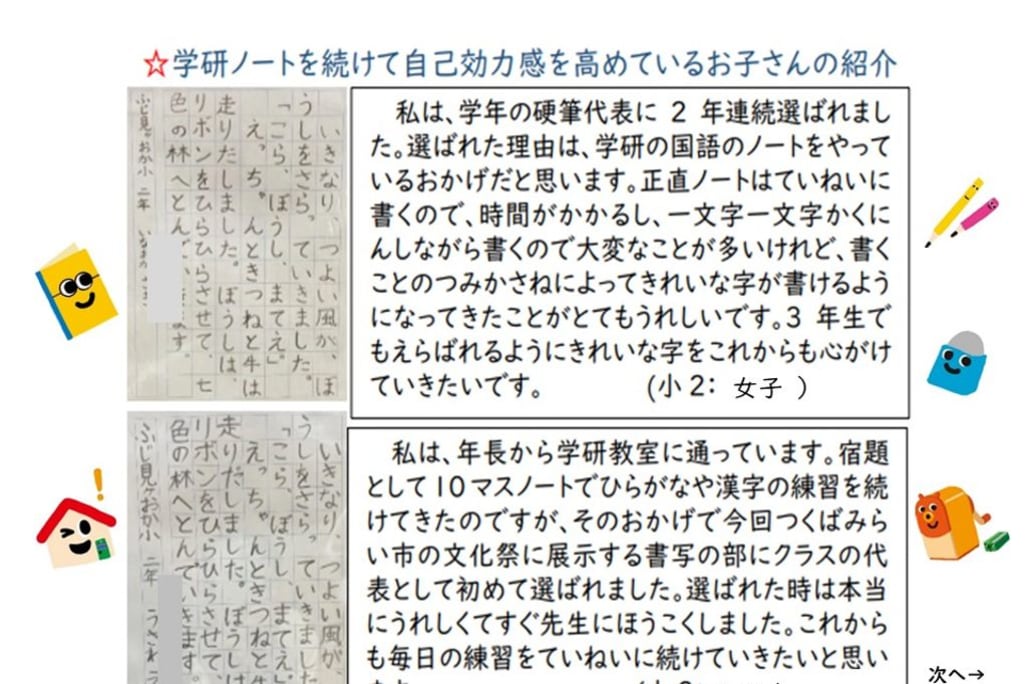 ☆学研ノートを続けて自己効力感を高めているお子さんの紹介
いきなり、つよい風が、ぼ
うしをさらっていきました。
「こら、ぼうし、まてえ」
えっちゃんときつねと牛は
走りだしました。ぼうしは、
リボンをひらひらさせて、七
色の林へとんでいきます。
ふじ見ヶおか小 二年
私は、学年の硬筆代表に 2 年連続選ばれまし
た。選ばれた理由は、学研の国語のノートをやって
いるおかげだと思います。正直ノートはていねいに
書くので、時間がかかるし、一文字一文字かくに
んしながら書くので大変なことが多いけれど、書く
ことのつみかさねによってきれいな字が書けるよう
になってきたことがとてもうれしいです。3 年生で
もえらばれるようにきれいな字をこれからも心がけ
ていきたいです。 (小 2: 女子 )
いきなり、つよい風が
うしをさらっていきました
「こら、ぼうし、まてえ」
えっちゃんときつねと
走りだしました。ぼうしは
リボンをひらひらさせて、
色の林へとんでいきます。
ふじ見ヶおか小 二年
私は、年長から学研教室に通っています。宿題
として10マスノートでひらがなや漢字の練習を続
けてきたのですが、そのおかげで今回つくばみら
い市の文化祭に展示する書写の部にクラスの代
表として初めて選ばれました。選ばれた時は本当
にうれしくてすぐ先生にほうこくしました。これから
も毎日の練習をていねいに続けていきたいと思い
次へ→